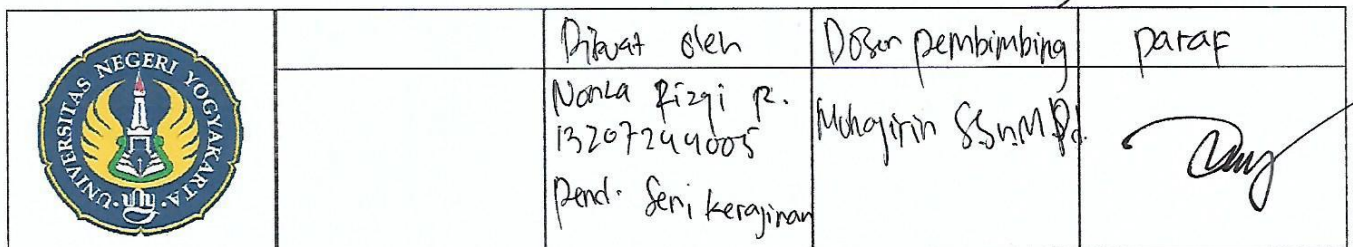 UNIVERSITAS NEGERI YOGYAKARTA
Dibuat oleh
Dosen pembimbing
paraf
Nonza Rizqi R.
13207244005
pend. Seni kerajinan
Muhajirin S.Sn.M.Pd.